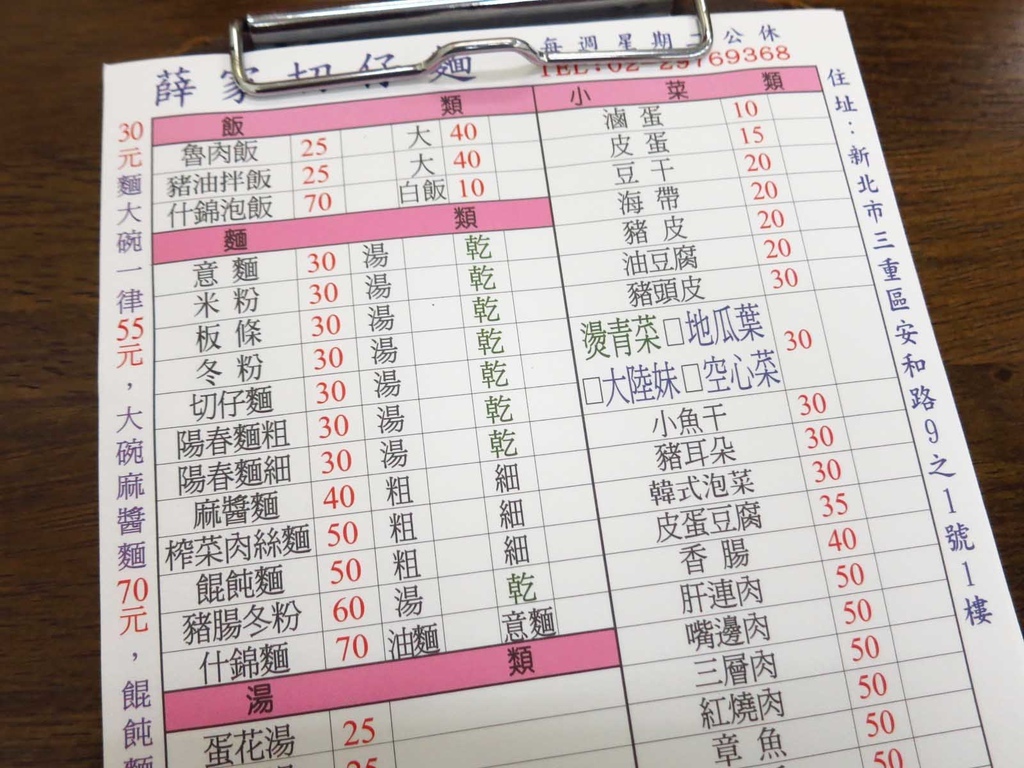 薛家切仔麵
每週星期二公休
TEL:02-29769368
飯 類
魯肉飯 25 大 40
豬油拌飯 25 大 40
什錦泡飯 70 白飯 10
麵 類
意麵 30 湯 乾
米粉 30 湯 乾
板條 30 湯 乾
冬粉 30 湯 乾
切仔麵 30 湯 乾
陽春麵粗 30 湯 乾
陽春麵細 30 湯 乾
麻醬麵 40 粗 細
榨菜肉絲麵 50 粗 細
餛飩麵 50 粗 細
豬腸冬粉 60 湯 乾
什錦麵 70 油麵 意麵
湯 類
蛋花湯 25
25
小菜類
滷蛋 10
皮蛋 15
豆干 20
海帶 20
豬皮 20
油豆腐 20
豬頭皮 30
燙青菜□地瓜葉 30
□大陸妹□空心菜
小魚干 30
豬耳朵 30
韓式泡菜 30
皮蛋豆腐 35
香腸 40
肝連肉 50
嘴邊肉 50
三層肉 50
紅燒肉 50
章魚 50
50
30元麵大碗一律55元，大碗麻醬麵70元，餛飩麵
住址：新北市三重區安和路9之1號1樓